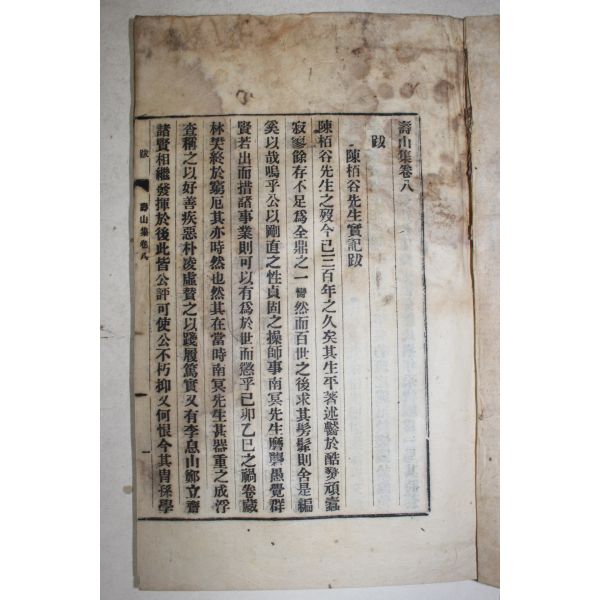 壽山集卷八
跋
陳栢谷先生實記跋
陳栢谷先生之歿今已三百年之久矣其生平著述鬱於酷燹頑蠹
寂寥餘存不足爲全鼎之一臠然而百世之後求其髣髴則舍是編
奚以哉嗚乎公以剛直之性貞固之操師事南冥先生磨礱愚覺群
賢若出而措諸事業則可以有爲於世而懲乎己卯乙巳之禍卷藏
林樊終於窮厄其亦時然也然其在當時南冥先生甚器重之成浮
查稱之以好善疾惡朴凌虛贊之以踐履篤實又有李息山鄭立齋
諸賢相繼發揮於後此皆公評可使公不朽抑又何恨今其胄孫學
跋 壽山集卷八 一